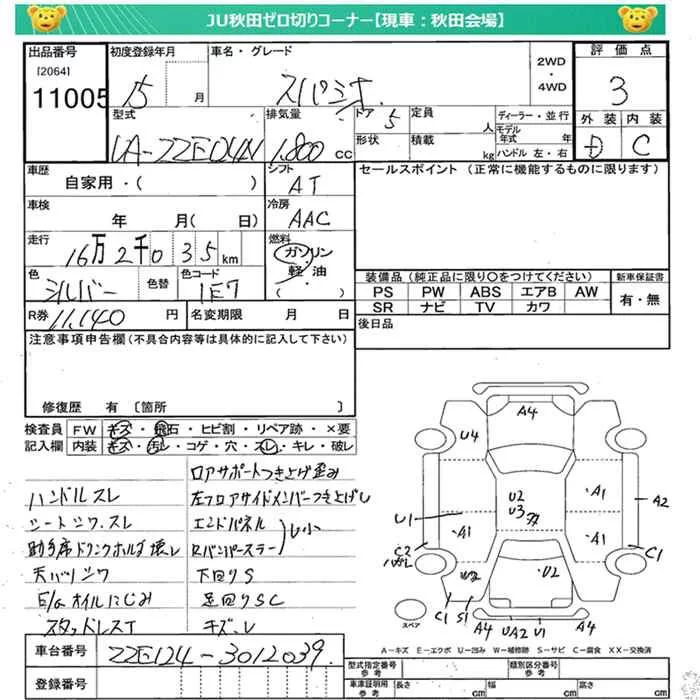 JU秋田ゼロ切りコーナー【現車：秋田会場】
出品番号
[2064]
11005
初度登録年月
15
月
車名・グレード
スパシオ
2WD
・
4WD
評価点
3
外装
内装
D
C
型式
UA-ZZE124N
排気量
1,800 cc
ドア 5
形状
定員
人
積載
kg
ディーラー・並行
モデル年式 年
ハンドル 左・右
車歴
自家用・( )
シフト
AT
セールスポイント (正常に機能するものに限ります)
車検
年 月( 日)
冷房
AAC
走行
16万2千035km
燃料
ガソリン
軽・油
( )
色
シルバー
色替
色コード
1E7
装備品 (純正品に限り○をつけてください)
新車保証書
PS PW ABS エアB AW
SR ナビ TV カワ
有・無
R券 11,140 円
名変期限 月 日
後日品
注意事項申告欄 (不具合内容等は具体的に記入して下さい)
修復歴 有 〔箇所 〕
検査員記入欄
FW キズ・飛石・ヒビ割・リペア跡・×要
内装 キズ・汚レ・コゲ・穴・スレ・キレ・破レ
ロアサポートつき上げ歪み
ハンドルスレ
左フロアサイドメンバーつき上げU
シートシワ、スレ
エンドパネル
U小
助手席ドリンクホルダ壊レ
Rバンパーステー
天バリシワ
下回りS
E/Gオイルにじみ
足回りSC
スタッドレスT
キズ、U
A4
U4
U2
U3
A1
A1
A2
U1
A1
C2
C1
U2
U2
C1
S1
A4
UA2
U1
A4
スペア
A－キズ E－エクボ U－凹み W－補修跡 S－サビ C－腐食 XX－交換済
車台番号
ZZE124-3012039
登録番号
型式指定番号
参考
類別区分番号
参考
車庫証明用
参考
長さ cm
幅 cm
高さ cm